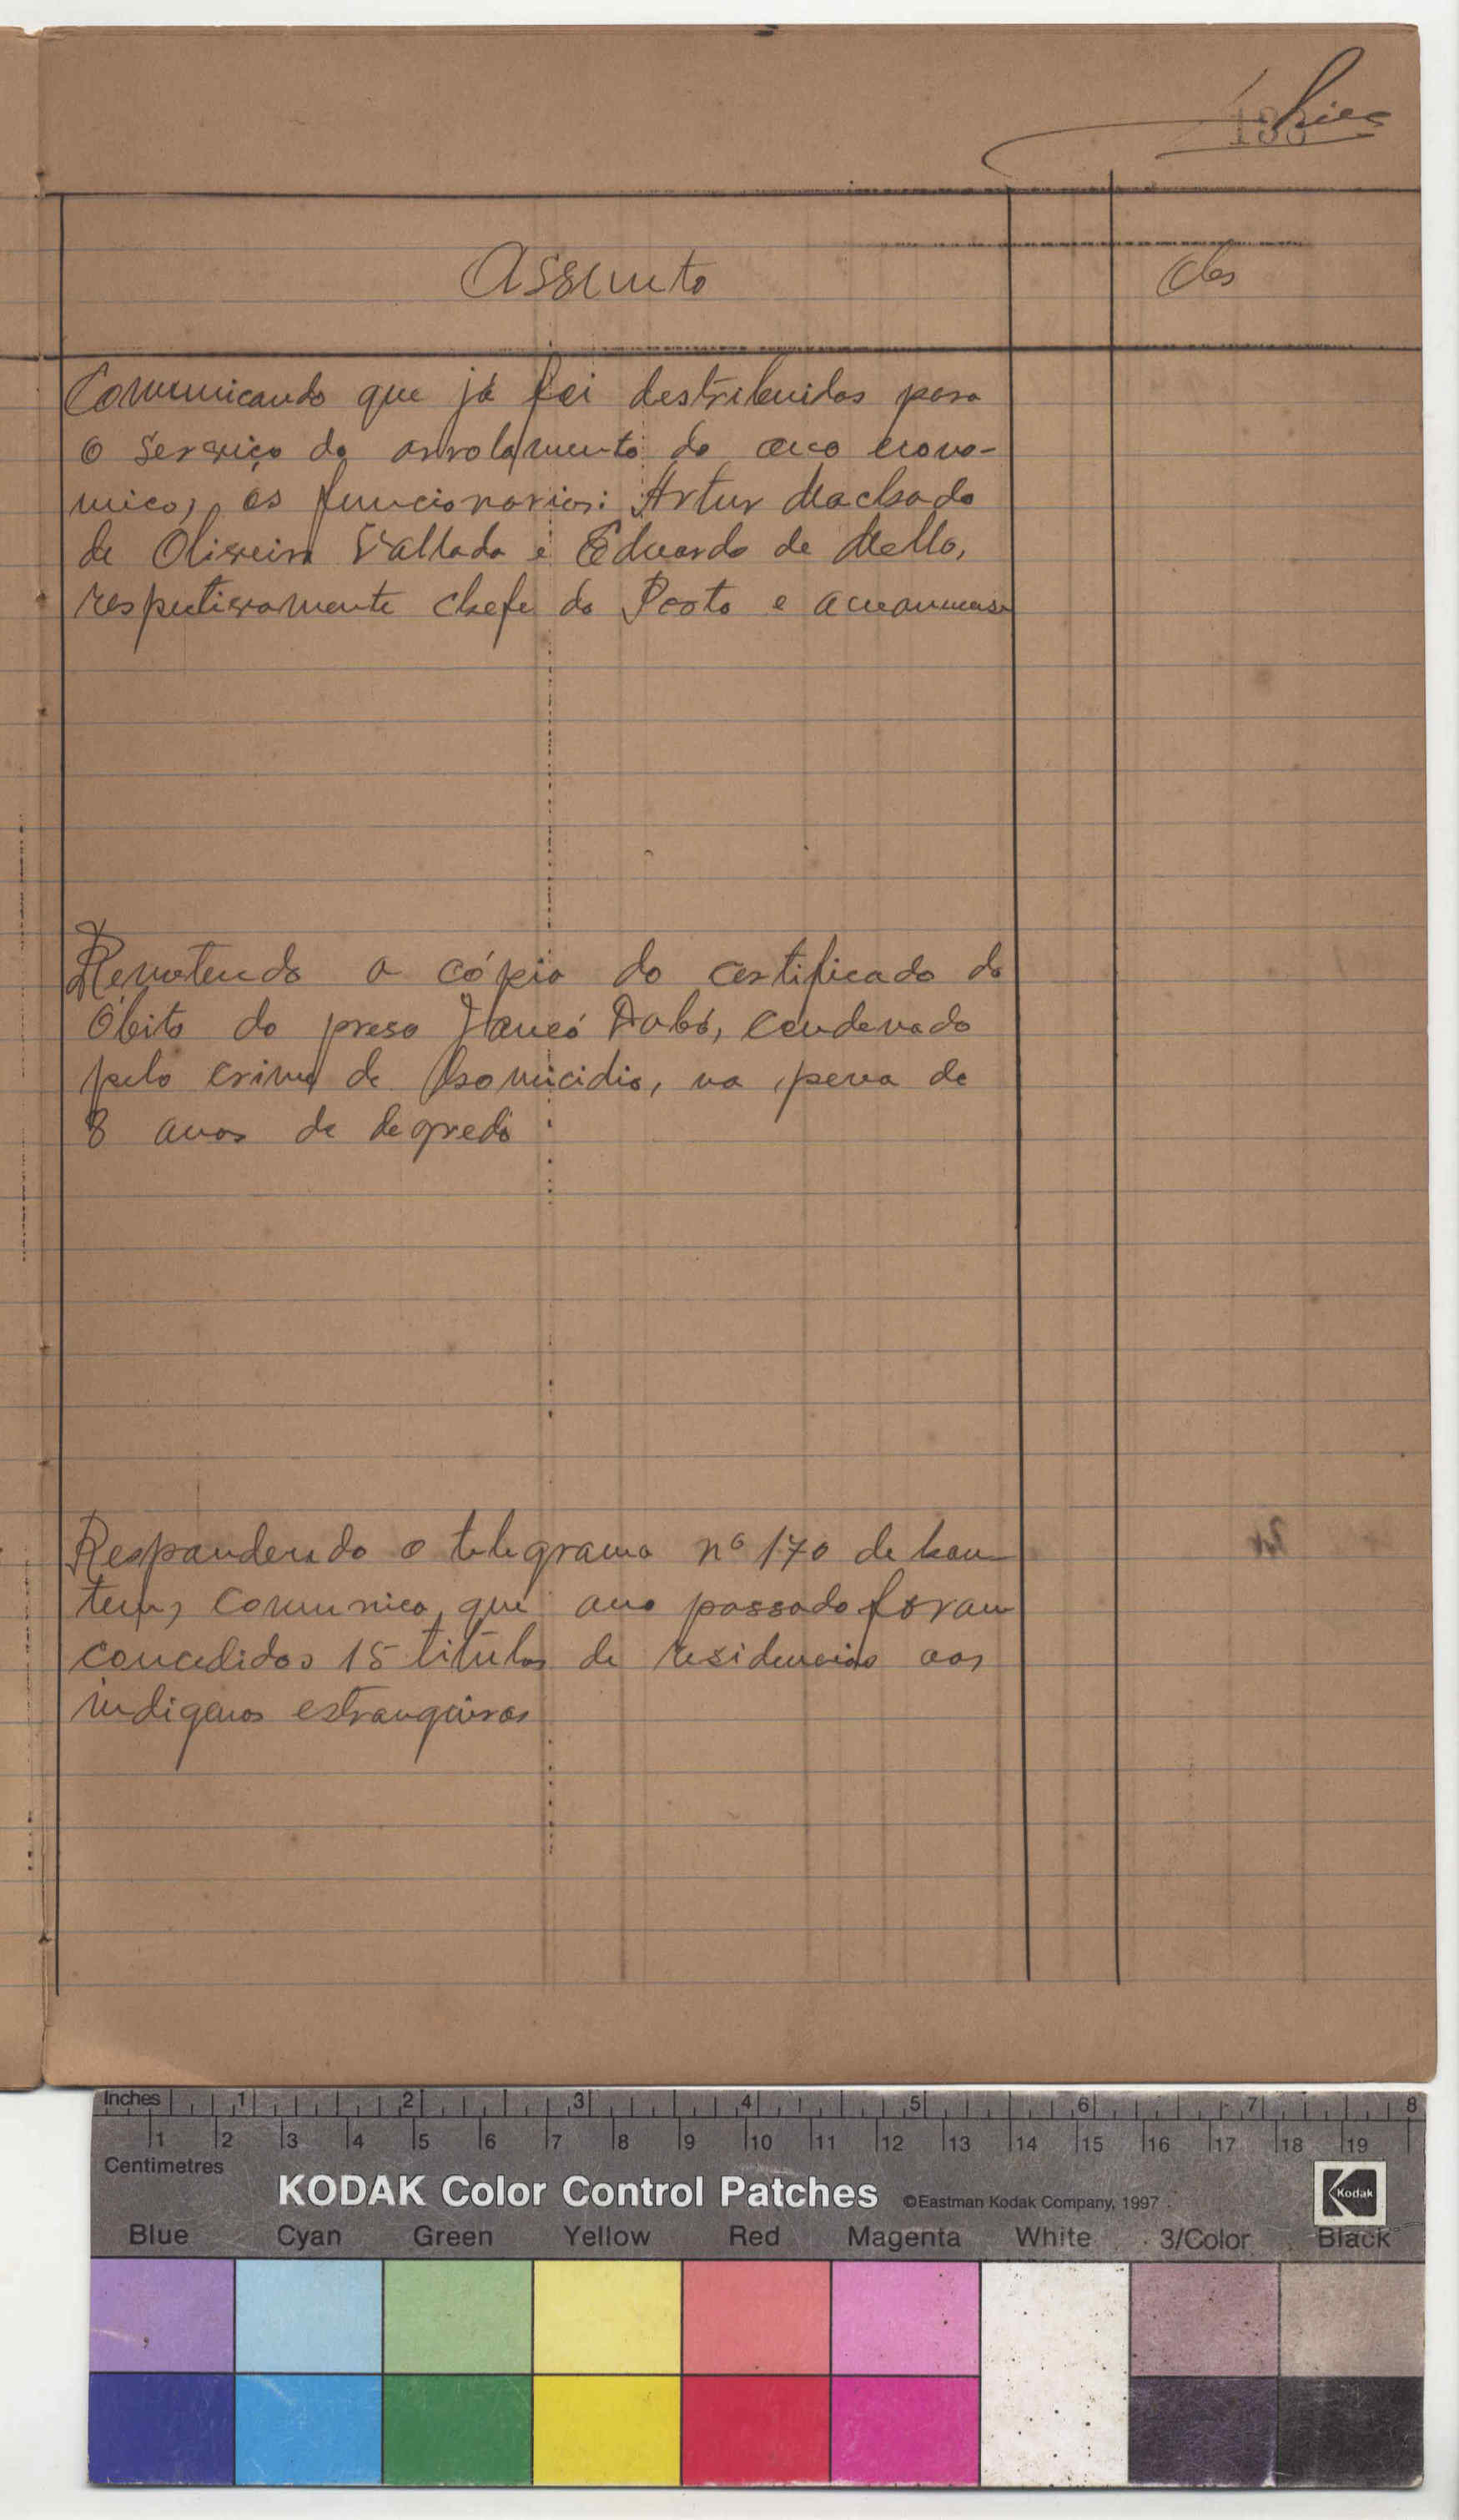 133
Assunto
Obs
Comunicando que já foi destribuidos para
o serviço do arrolamento do ano econo-
mico, os funcionarios: Artur Machado
de Oliveira Vallada e Eduardo de Mello,
respectivamente chefe do Posto e
Remetendo a cópia do certificado do
Óbito do preso Dabó, condenado
pelo crime de homicidio, na pena de
8 anos de degredo
Respondendo o telegrama nº 170 de hon
tem, comunico, que ano passado foram
concedidos 15 titulos de residencias aos
indigenos estrangeiros
Inches 1 2 3 4 5 6 7 8
1 2 3 4 5 6 7 8 9 10 11 12 13 14 15 16 17 18 19
Centimetres
KODAK Color Control Patches ©Eastman Kodak Company, 1997
Kodak
Blue Cyan Green Yellow Red Magenta White 3/Color Black